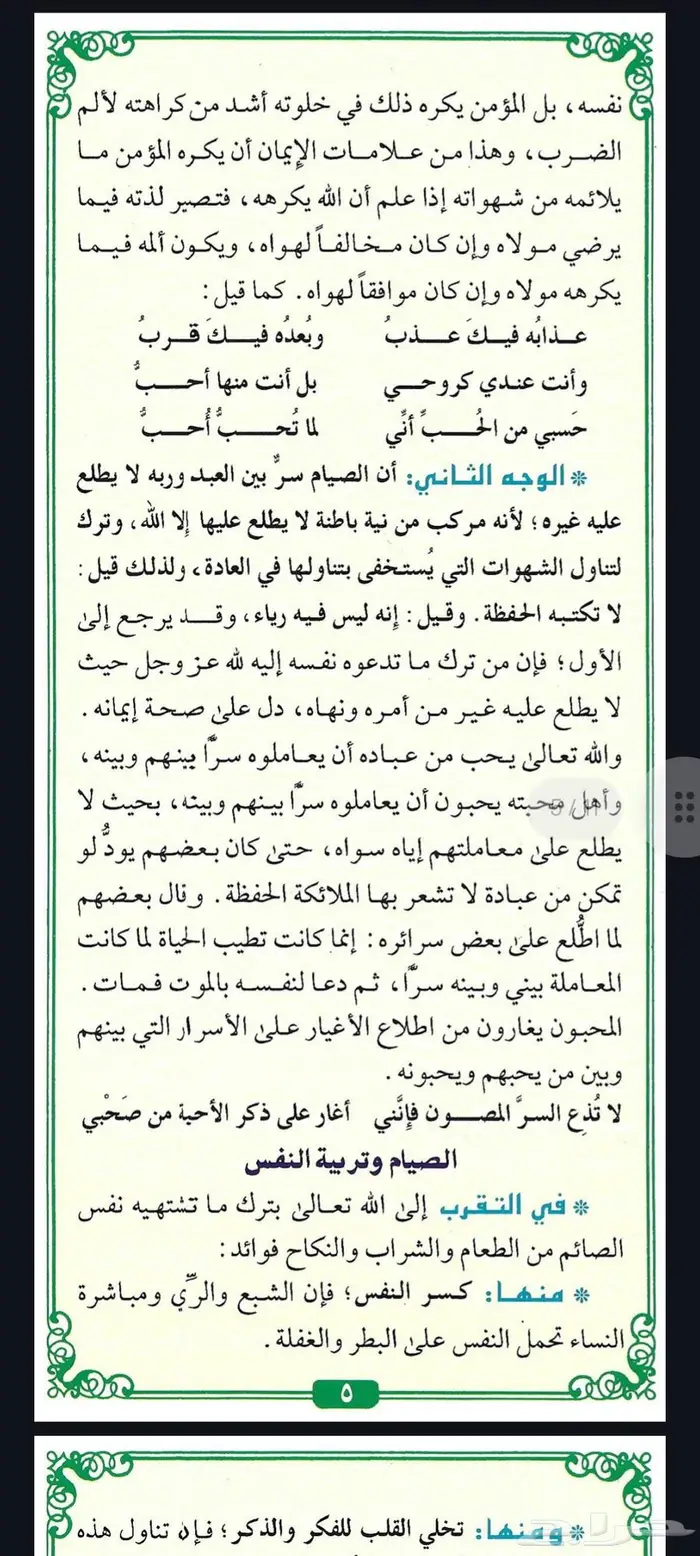 نفسه، بل المؤمن يكره ذلك في خلوته أشد من كراهته لألم
الضرب، وهذا من علامات الإيمان أن يكره المؤمن ما
يلائمه من شهواته إذا علم أن الله يكرهه، فتصير لذته فيما
يرضي مولاه وإن كان مخالفاً لهواه، ويكون ألمه فيما
يكرهه مولاه وإن كان موافقاً لهواه. كما قيل:
عـذابُه فيـكَ عـذبُ وبُعدُه فيـكَ قـربُ
وأنت عندي كروحـي بل أنت منها أحـبُّ
حَسبي من الحُـبِّ أنّي لما تُحـبُّ أُحـبُّ
* الوجه الثاني: أن الصيام سرٌّ بين العبد وربه لا يطلع
عليه غيره؛ لأنه مركب من نية باطنة لا يطلع عليها إلا الله، وترك
لتناول الشهوات التي يُستخفى بتناولها في العادة، ولذلك قيل:
لا تكتبه الحفظة. وقيل: إنه ليس فيه رياء، وقد يرجع إلى
الأول؛ فإن من ترك ما تدعوه نفسه إليه لله عز وجل حيث
لا يطلع عليه غير من أمره ونهاه، دل على صحة إيمانه.
والله تعالى يحب من عباده أن يعاملوه سرًّا بينهم وبينه،
وأهل محبته يحبون أن يعاملوه سرًّا بينهم وبينه، بحيث لا
يطلع على معاملتهم إياه سواه، حتى كان بعضهم يودُّ لو
تمكن من عبادة لا تشعر بها الملائكة الحفظة. وقال بعضهم
لما اطُّلع على بعض سرائره: إنما كانت تطيب الحياة لما كانت
المعاملة بيني وبينه سرًّا، ثم دعا لنفسه بالموت فمات.
المحبون يغارون من اطلاع الأغيار على الأسرار التي بينهم
وبين من يحبهم ويحبونه.
لا تُذِع السرَّ المصـون فإنَّني أغار على ذكر الأحبة من صَحْبي
الصيام وتربية النفس
* في التقرب إلى الله تعالى بترك ما تشتهيه نفس
الصائم من الطعام والشراب والنكاح فوائد:
* منها: كسر النفس؛ فإن الشبع والرِّي ومباشرة
النساء تحمل النفس على البطر والغفلة.
٥
* ومنها: تخلي القلب للفكر والذكر؛ فإن تناول هذه